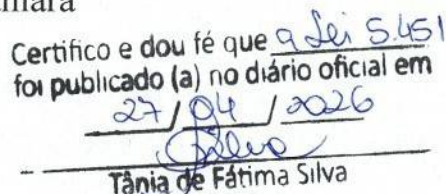 mara
Certifico e dou fé que a Lei 5.451
foi publicado (a) no diário oficial em
27 / 04 / 2026
Silva
Tânia de Fátima Silva